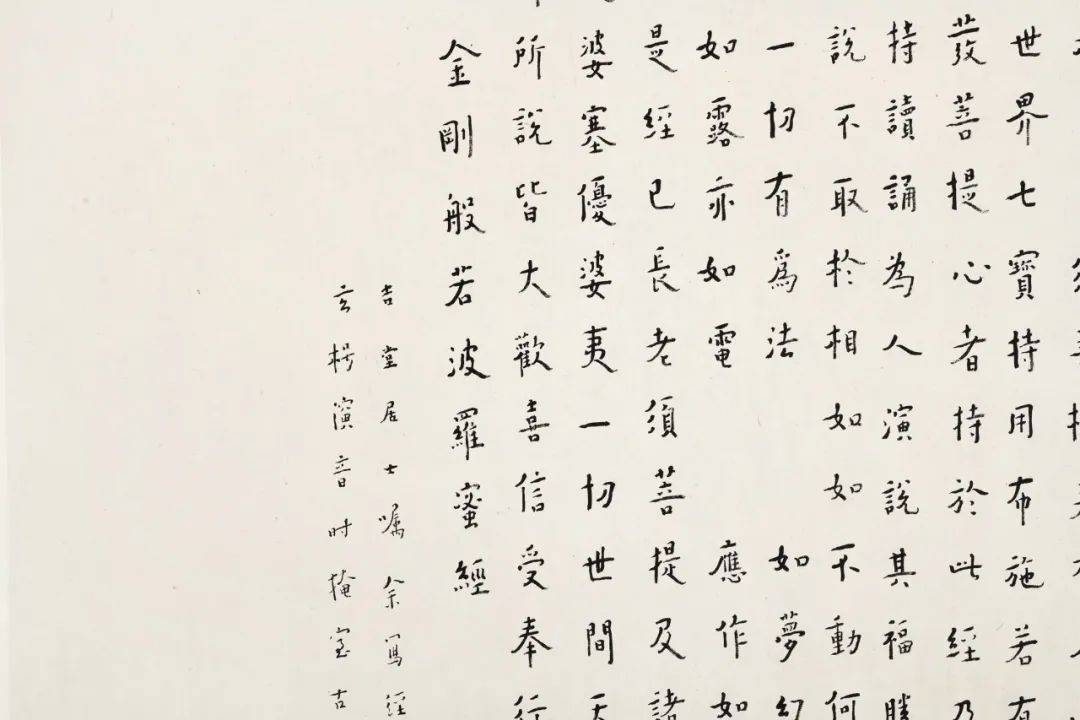 世界七寶持用布施若有
發菩提心者持於此經乃
持讀誦為人演說其福勝
說不取於相如如不動何
一切有爲法 如夢幻
如露亦如電 應作如
是經已長老須菩提及諸
婆塞優婆夷一切世間天
所說皆大歡喜信受奉行
金剛般若波羅蜜經
吉堂居士嘱余寫經
玄楊演音时掩室古